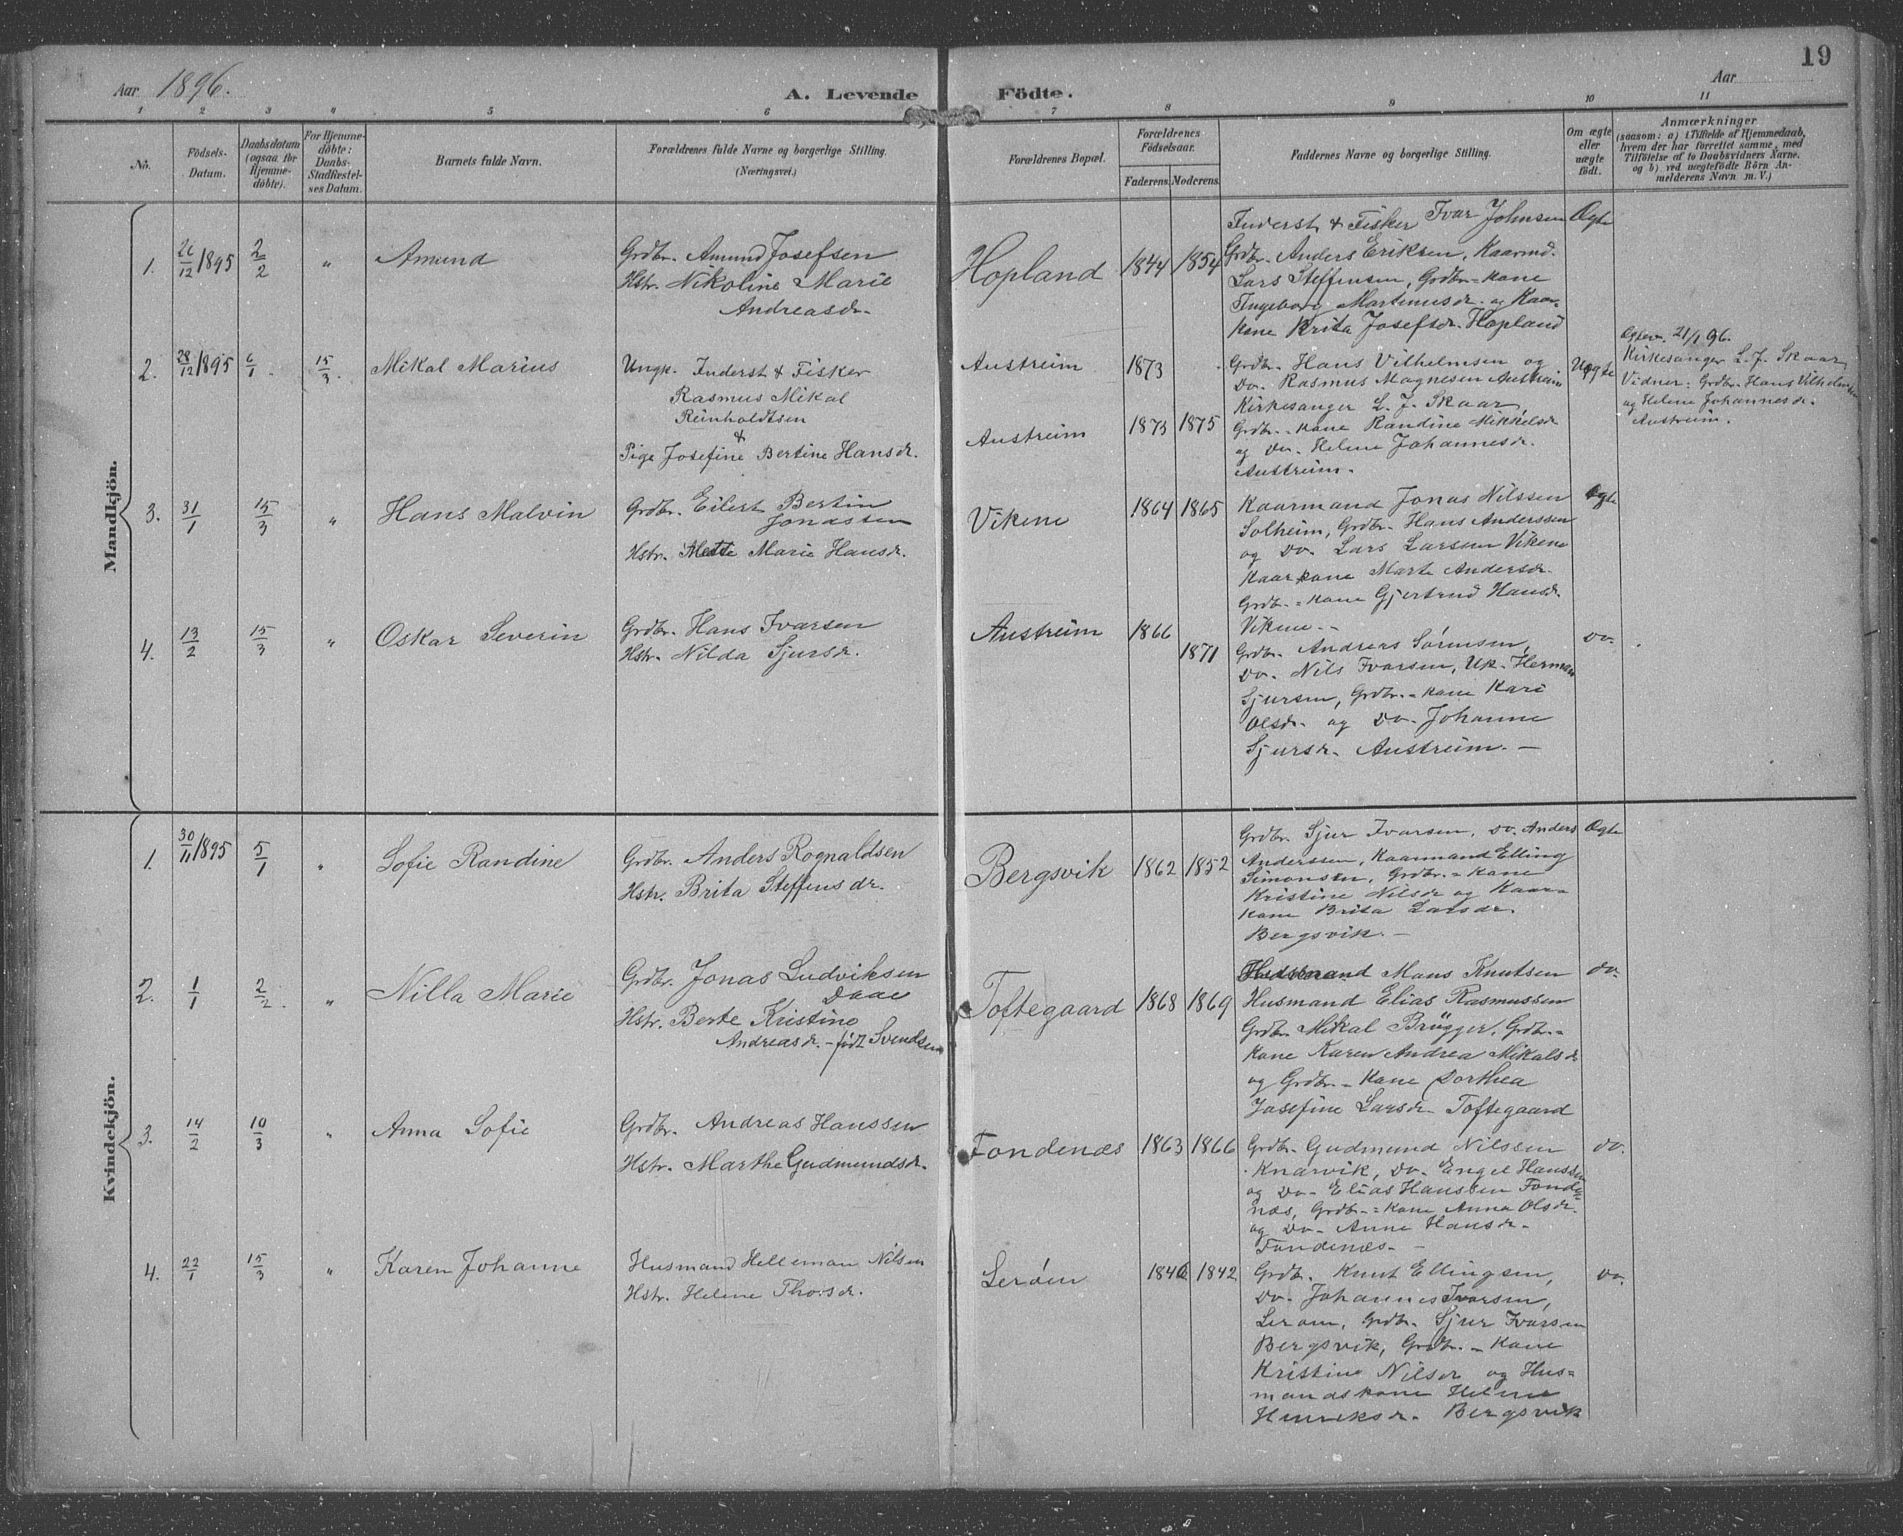 19
Aar 1896.
A. Levende Födte.
Aar
1 2 3 4 5 6 7 8 9 10 11
No.
Födsels-
Datum.
Daabsdatum
(ogsaa for
Hjemme-
döbte).
For Hjemme-
döbte:
Daabs-
Stadfæstel-
ses Datum.
Barnets fulde Navn.
Forældrenes fulde Navne og borgerlige Stilling.
(Næringsvei.)
Forældrenes Bopæl.
Forældrenes
Födselsaar.
Faderens. Moderens.
Faddernes Navne og borgerlige Stilling.
Om ægte
eller
uægte
födt.
Anmærkninger
(saasom: a) i Tilfælde af Hjemmedaab,
hvem der har forrettet samme, med
Tilföielse af to Daabsvidners Navne.
og b) ved uægtefödte Börn An-
melderens Navn m. V.)
Mandkjön.
1. 26/12 1895 2/2 " Amund
Grdbr. Amund Josefsen
Hstr. Nikoline Marie
Andreasdr.
Hopland 1844 1854
Inderst & Fisker Ivar Johnsen
Grdbr. Anders Eriksen, Kaarmd.
Lars Steffensen, Grdbr.=kone
Ingeborg Martinusdr. og Kaar-
kone Brita Josefsdr. Hopland
Ægte
2. 28/12 1895 6/1 15/3. Mikal Marius
Ungk. Inderst & Fisker
Rasmus Mikal
Reinholdtsen
&
Pige Josefine Bertine Hansdr.
Austreim 1873
Austreim 1873 1875
Grdbr. Hans Vilhelmsen og
Do. Rasmus Magnesen Austreim
Kirkesanger L. J. Skaar,
Grdbr.-kone Randine Mikkelsdr
og Do. Helene Johannesdr.
Austreim.
Uægte
21/1 96.
Kirkesanger L. J. Skaar
Vidner: Grdbr. Hans Vilhelmsen
og Helene Johannesdr.
Austreim.
3. 31/1 15/3 " Hans Malvin
Grdbr. Eilert Bertin
Jonassen
Hstr. Mette Marie Hansdr.
Vikene 1864 1865
Kaarmand Jonas Nilssen
Solheim, Grdbr. Hans Anderssen
og Do. Lars Larsen Vikene
Kaarkone Marte Andersdr.
Grdbr.=kone Gjertrud Hansdr.
Vikene.-
Ægte
4. 13/2 15/3 " Oskar Severin
Grdbr. Hans Ivarsen
Hstr. Nilda Sjursdr.
Austreim 1866
1871
Grdbr. Andreas Sørensen,
Do. Nils Ivarsen, Uk. Herman
Sjursen, Grdbr.=kone Kari
Olsdr. og Do. Johanne
Sjursdr. Austreim. -
Do.
Kvindekjön.
1. 30/11 1895 5/1 " Sofie Randine
Grdbr. Anders Rognaldsen
Hstr. Brita Steffensdr.
Bergsvik 1862 1852
Grdbr. Sjur Ivarsen, Do. Anders
Anderssen, Kaarmand Elling
Simonsen, Grdbr.=kone
Kristine Nilsdr og Kaar=
kone Brita Larsdr.
Bergsvik. -
Ægte
2. 1/1 2/2. " Nilla Marie
Grdbr. Jonas Ludviksen
Daae
Hstr. Berte Kristine
Andreasdr. - født Svendsen
Toftegaard 1868 1869
Mons Knutsen
Husmand Elias Rasmussen
Grdbr. Mikal Brügger, Grdbr.=
kone Karen Andrea Mikalsdr
og Grdbr.=kone Dorthea
Josefine Larsdr. Toftegaard
Do.
3. 14/2 10/3 " Anna Sofie
Grdbr. Andreas Hanssen
Hstr. Marthe Gudmundsdr.
Fondenæs 1863 1866
Grdbr. Gudmund Nilssen
Knarvik, Do. Engel Hanssen
og Do. Elias Hanssen Fonde-
næs, Grdbr.=kone Anna Olsdr.
og Do. Anne Hansdr.
Fondenæs. -
Do.
4. 22/1 15/3 " Karen Johanne
Husmand Helleman Nilsen
Hstr. Helene Thorsdr.
Lerøen 1842
Grdbr. Knut Ellingsen,
Do. Johannes Ivarsen,
Lerøen, Grdbr. Sjur Ivarsen
Bergsvik, Grdbr.=kone
Kristine Nilsdr og Hus=
mandskone Helene
Henriksdr. Bergsvik
Do.